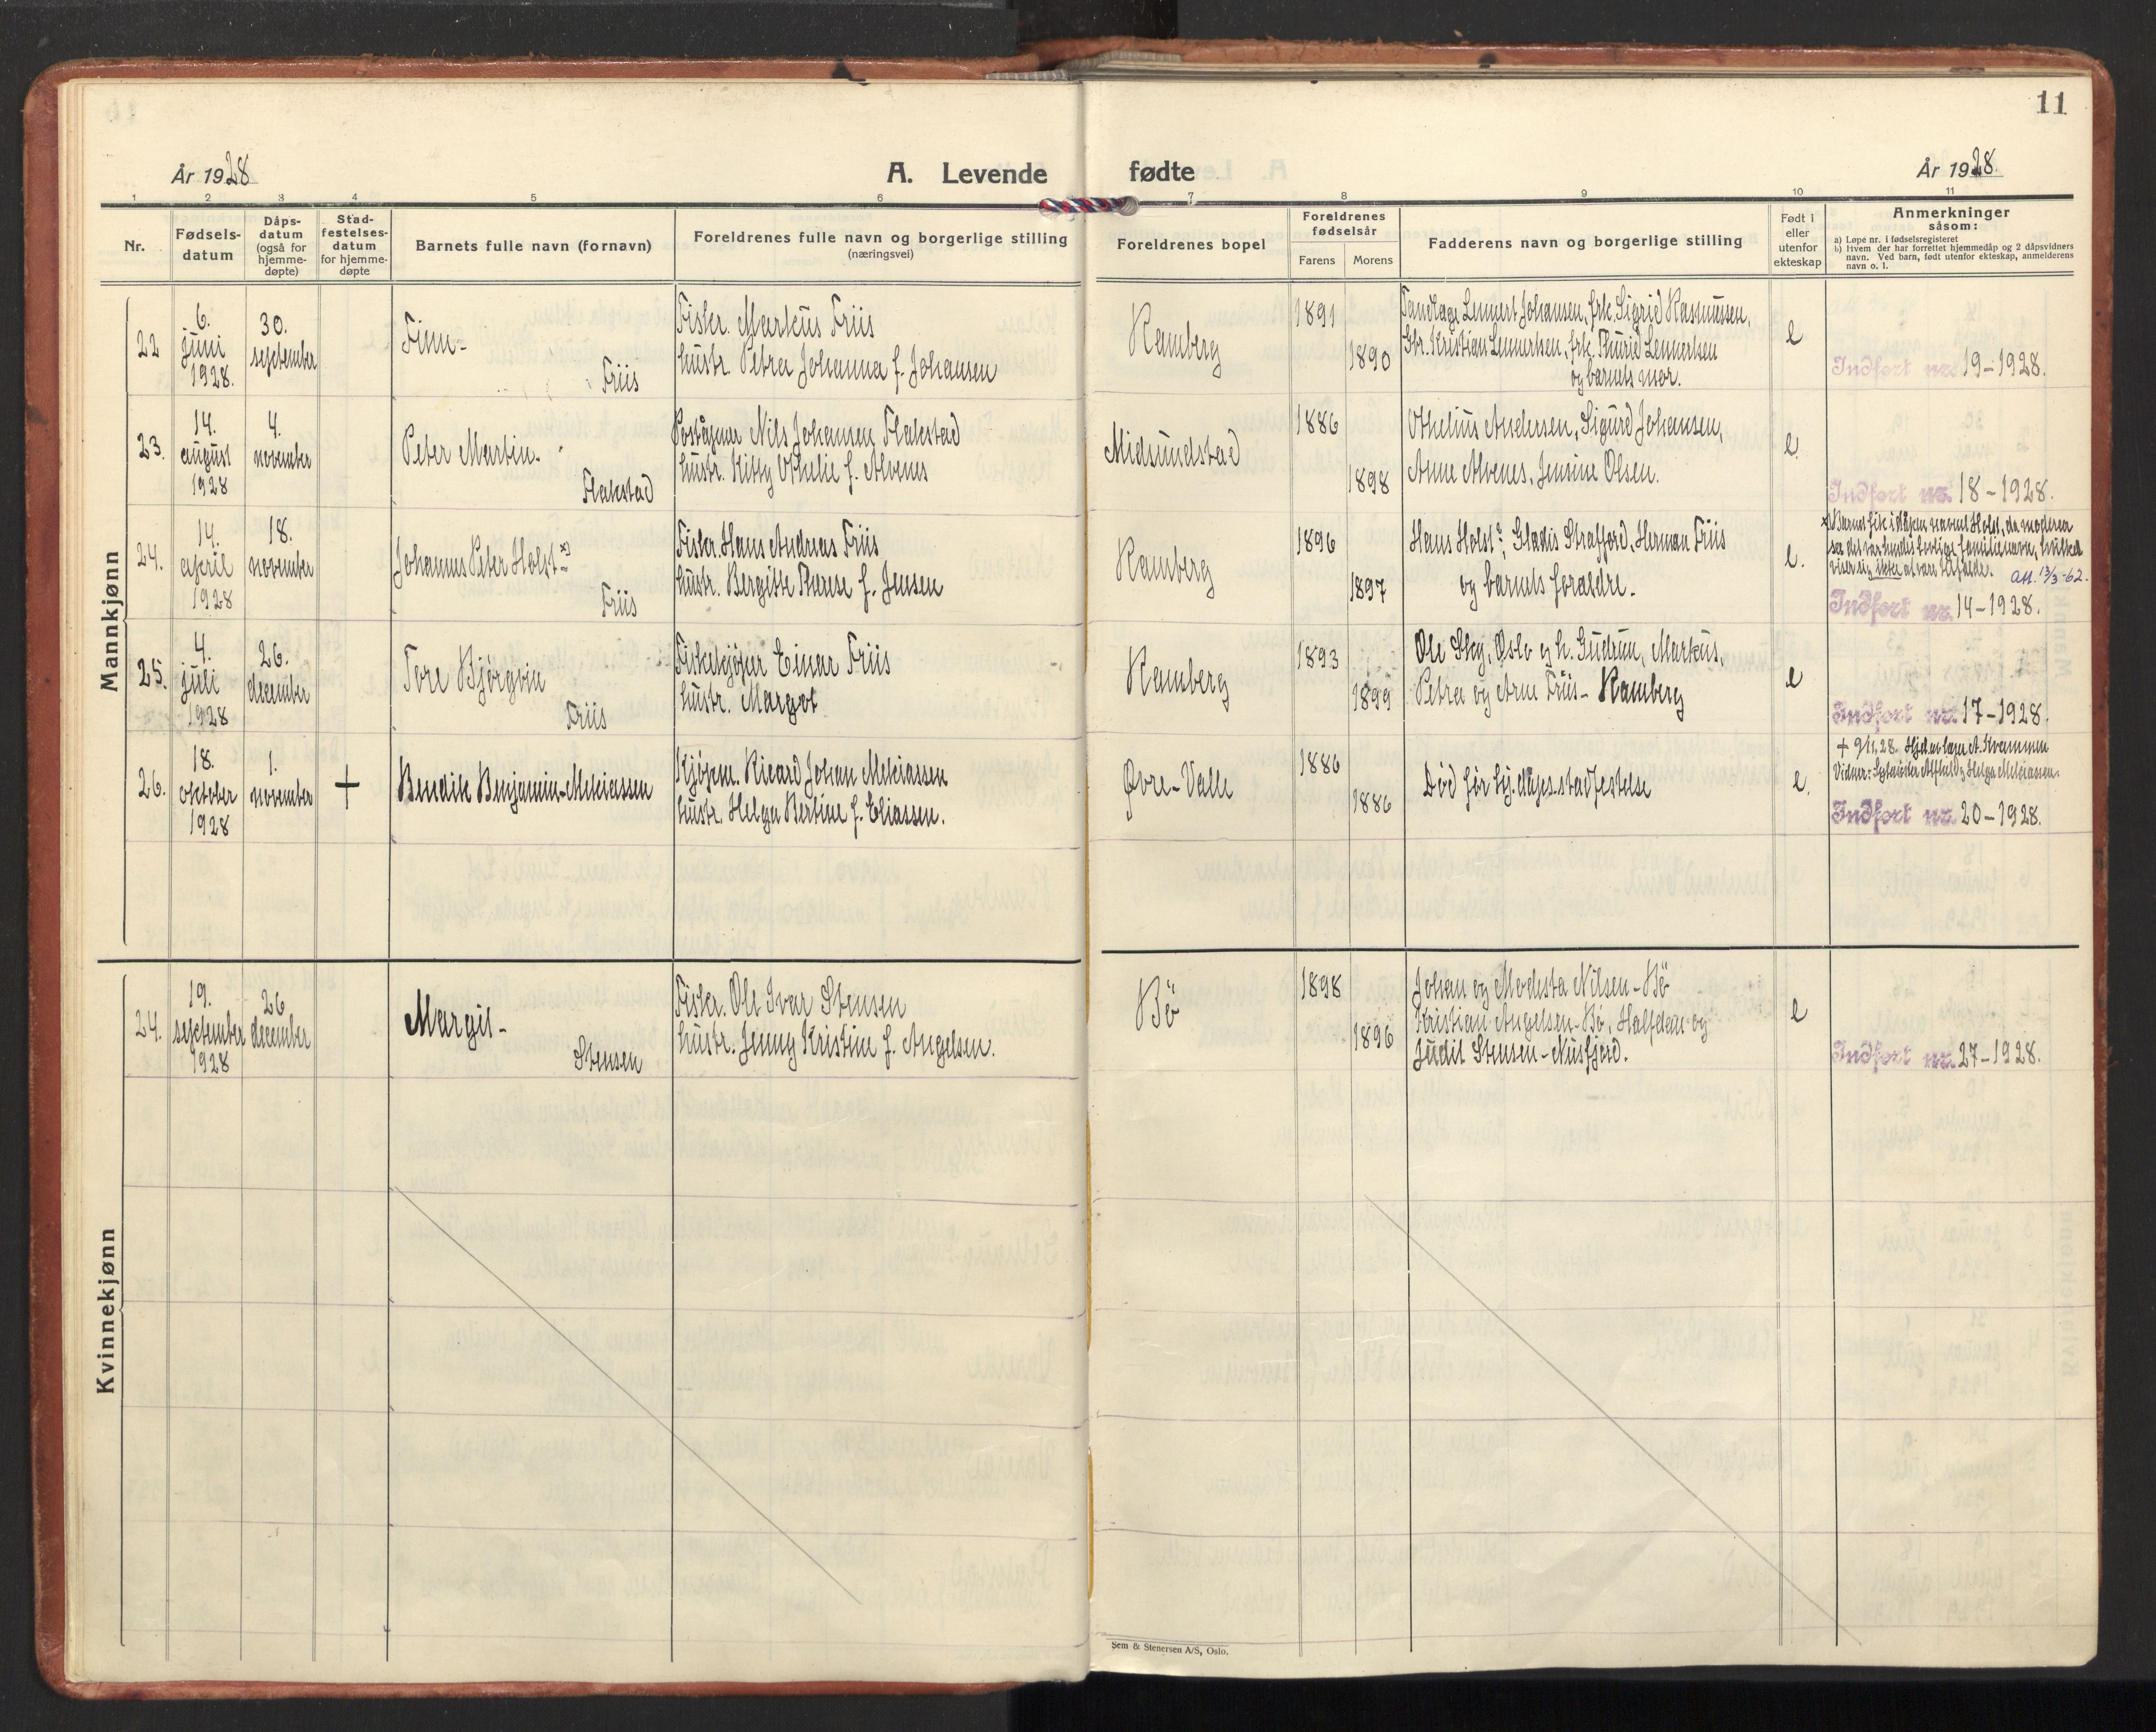 11
År 1928
A. Levende
fødte
År 1928.
1 2 3 4 5 6 7 8 9 10 11
Nr.
Fødsels-
datum
Dåps-
datum
(også for
hjemme-
døpte)
Stad-
festelses-
datum
for hjemme-
døpte
Barnets fulle navn (fornavn)
Foreldrenes fulle navn og borgerlige stilling
(næringsvei)
Foreldrenes bopel
Foreldrenes
fødselsår
Farens
Morens
Fadderens navn og borgerlige stilling
Født i
eller
utenfor
ekteskap
Anmerkninger
såsom:
a) Løpe nr. i fødselsregisteret
b) Hvem der har forrettet hjemmedåp og 2 dåpsvidners
navn. Ved barn, født utenfor ekteskap, anmelderens
navn o. l.
Mannkjønn
22
6.
juni
1928.
30.
september
Finn-
Friis
Fisker. Markus Friis
hustr. Petra Johanna f. Johansen
Ramberg
1891
1890
Tandlæge Lennert Johansen, frk. Sigrid Rasmussen,
Gbr. Kristian Lennertsen, frk. Thurid Lennertsen
og barnets mor.
e
Indført nr. 19-1928.
23.
14.
august
1928
4.
november
Peter Martin.
Flakstad
Poståpner Nils Johansen Flakstad
hustr. Kitty Othelie f. Alvenes
Midsundstad
1886
1898
Othelius Andersen, Sigurd Johansen,
Anne Alvenes, Jensine Olsen.
e.
Indført nr. 18-1928.
24.
14.
april
1928
18.
november
Johannes Peter Holst x)
Friis
Fisker. Hans Andreas Friis
hustr. Bergitte Therese f. Jensen
Ramberg
1896
1897
Hans Holst, Gladis Strafford, Herman Friis
og barnets forældre.
e.
x) Barnet fik i dåpen navnet Holst, da moderen
sa det var hendes forlige familienavn, hvilket
viser sig ikke at være tilfælde. 13/3-62.
Indført nr. 14-1928.
25.
4.
juli
1928
26.
december
Tore Bjørgvin
Friis
Fiskekjøper Einar Friis
hustr. Margot
Ramberg
1893
1899
Ole Sky, Oslo og h. Gudrun, Markus,
Petra og Arne Friis- Ramberg
e
Indført nr. 17-1928.
26.
18.
oktober
1928
1.
november
+
Bendik Benjamin-Mekiassen
Kjøpm. Ricard Johan Mekiassen
hustr. Helga Bertine f. Eliassen.
Øvre-Valle
1886
1886
Død før hj.dåpsstadfestelse
e.
+ 9/11.28. Hjd. av lærer A. Kvammen
Vidner: Alfhild og Helga Mekiassen.
Indført nr. 20-1928.
Kvinnekjønn
24.
19.
september
1928
26
december
Margit-
Stensen
Fisker. Ole Ivar Stensen
hustr. Jenny Kristine f. Angelsen.
Bø
1898
1896
Johan og Modesta Nilsen-Bø
Kristian Angelsen-Bø, Halfdan og
Judit Stensen-Nusfjord.
e
Indført nr. 27-1928.
Sem & Stenersen A/S, Oslo.